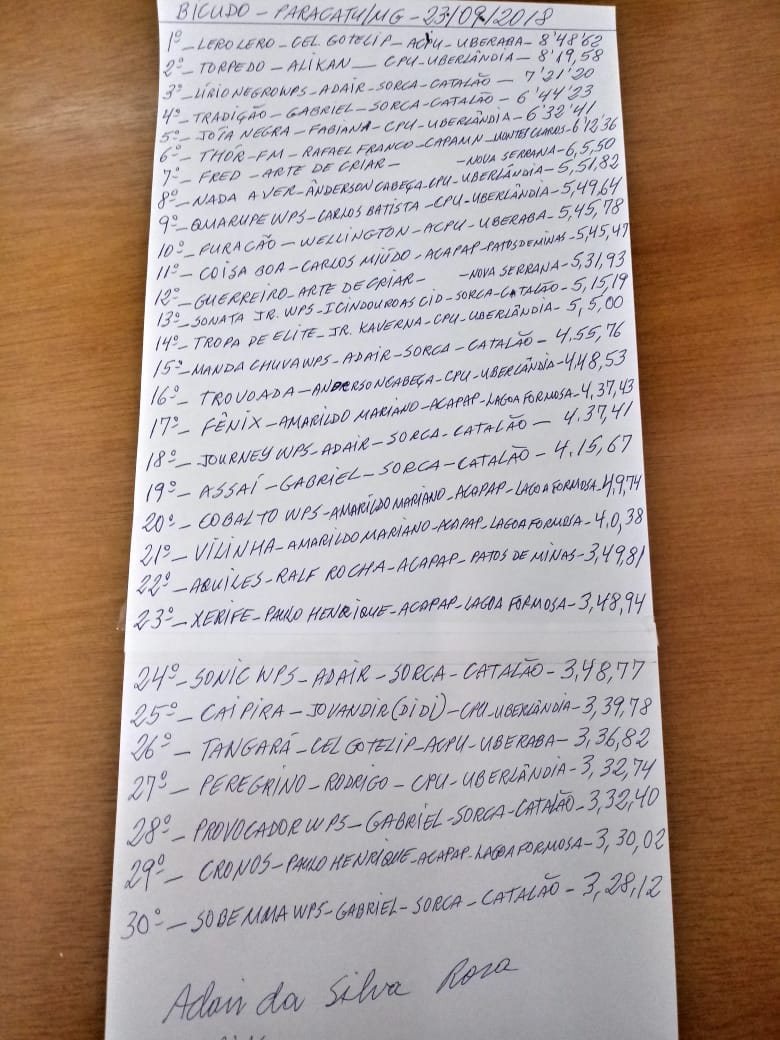 BICUDO - PARACATU/MG - 23/09/2018
1º - LEROLERO - CEL GOTELIP - ACPU - UBERABA - 8'48'62
2º - TORPEDO - ALIKAN - CPU - UBERLÂNDIA - 8'19,58
3º - LÍRIO NEGRO WPS - ADAIR - SORCA - CATALÃO - 7'21'20
4º - TRADIÇÃO - GABRIEL - SORCA - CATALÃO - 6'44'23
5º - JÓIA NEGRA - FABIANA - CPU - UBERLÂNDIA - 6'32'41
6º - THOR - FM - RAFAEL FRANCO - CAPAMN - MONTES CLAROS - 6'12'36
7º - FRED - ARTE DE CRIAR - - NOVA SERRANA - 6,5,50
8º - NADA A VER - ÂNDERSON CABEÇA - CPU - UBERLÂNDIA - 5,51,82
9º - QUARUPE WPS - CARLOS BATISTA - CPU - UBERLÂNDIA - 5,49,64
10º - FURACÃO - WELLINGTON - ACPU - UBERABA - 5,45,78
11º - COISA BOA - CARLOS MIÚDO - ACAPAP - PATOS DE MINAS - 5,45,47
12º - GUERREIRO - ARTE DE CRIAR - - NOVA SERRANA - 5,31,93
13º - SONATA JR. WPS - ICINDOUROAS CID - SORCA - CATALÃO - 5,15,19
14º - TROPA DE ELITE - JR. KAVERNA - CPU - UBERLÂNDIA - 5,5,00
15º - MANDA CHUVA WPS - ADAIR - SORCA - CATALÃO - 4.55,76
16º - TROVOADA - ANDERSON CABEÇA - CPU - UBERLÂNDIA - 4,48,53
17º - FÊNIX - AMARILDO MARIANO - ACAPAP - LAGOA FORMOSA - 4,37,43
18º - JOURNEY WPS - ADAIR - SORCA - CATALÃO - 4.37,41
19º - ASSAÍ - GABRIEL - SORCA - CATALÃO - 4.15,67
20º - COBALTO WPS - AMARILDO MARIANO - ACAPAP - LAGOA FORMOSA - 4,9,74
21º - VILINHA - AMARILDO MARIANO - ACAPAP - LAGOA FORMOSA - 4,0,38
22º - AQUILES - RALF ROCHA - ACAPAP - PATOS DE MINAS - 3,49,81
23º - XERIFE - PAULO HENRIQUE - ACAPAP - LAGOA FORMOSA - 3,48,94
24º - SONIC WPS - ADAIR - SORCA - CATALÃO - 3,48,77
25º - CAIPIRA - JOVANDIR (DIDI) - CPU - UBERLÂNDIA - 3,39,78
26º - TANGARÁ - CEL GOTELIP - ACPU - UBERABA - 3,36,82
27º - PEREGRINO - RODRIGO - CPU - UBERLÂNDIA - 3,32,74
28º - PROVOCADOR WPS - GABRIEL - SORCA - CATALÃO - 3,32,40
29º - CRONOS - PAULO HENRIQUE - ACAPAP - LAGOA FORMOSA - 3,30,02
30º - SOBEMMA WPS - GABRIEL - SORCA - CATALÃO - 3,28,12
Adair da Silva Rosa